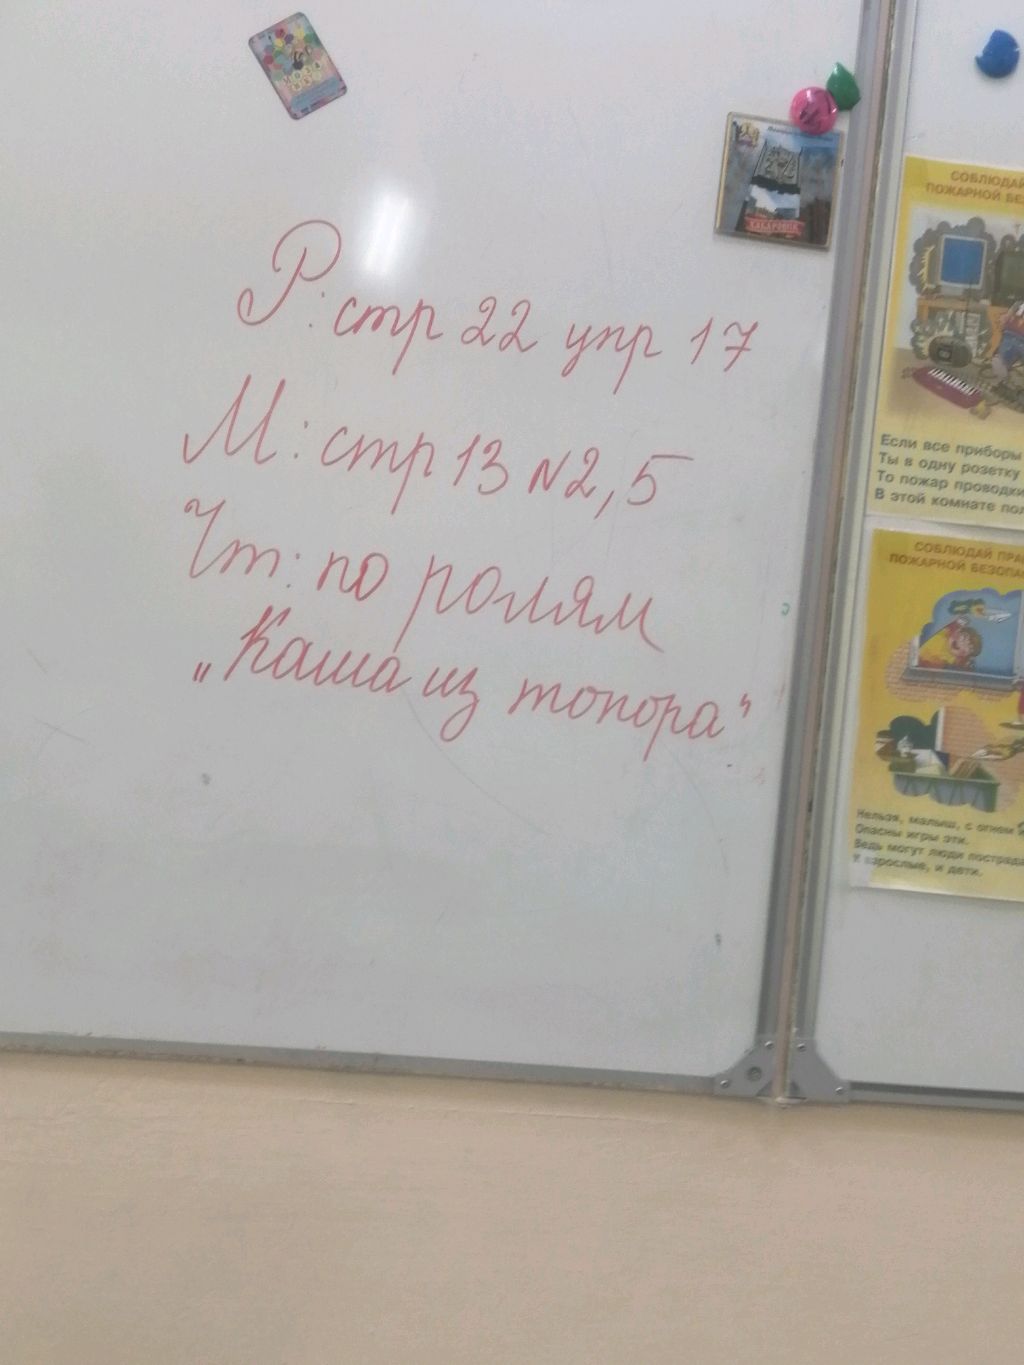 Р: стр 22 упр 17
М: стр 13 №2,5
Чт: по ролям
„Каша из топора"
ХАБАРОВСК
СОБЛЮДАЙ
ПОЖАРНОЙ
Если все приборы
Ты в одну розетку
То пожар проводки
В этой комнате
СОБЛЮДАЙ
ПОЖАРНОЙ
Нельзя, малыш, с огнем
Опасны игры эти.
Ведь могут люди
И взрослые, и дети.